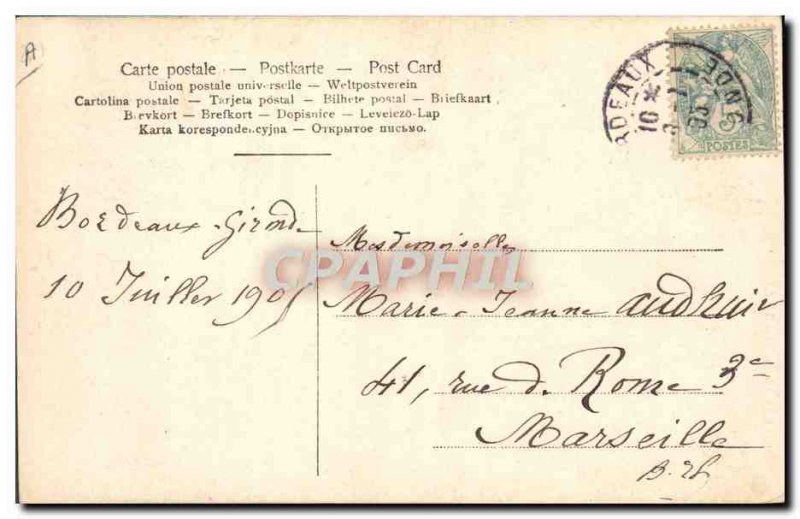 A
Carte postale — Postkarte — Post Card
Union postale universelle — Weltpostverein
Cartolina postale — Tarjeta postal — Bilhete postal — Briefkaart
Brevkort — Brefkort — Dopisnice — Levelező-Lap
Karta korespondencyjna — Открытое письмо.
RDEAUX
10
POSTES
Bordeaux. Girond.
10 Juillet 1905
Mesdemoiselles
Marie-Jeanne
41, rue d. Rome 3e
Marseille
B. Rh
CPAPHIL